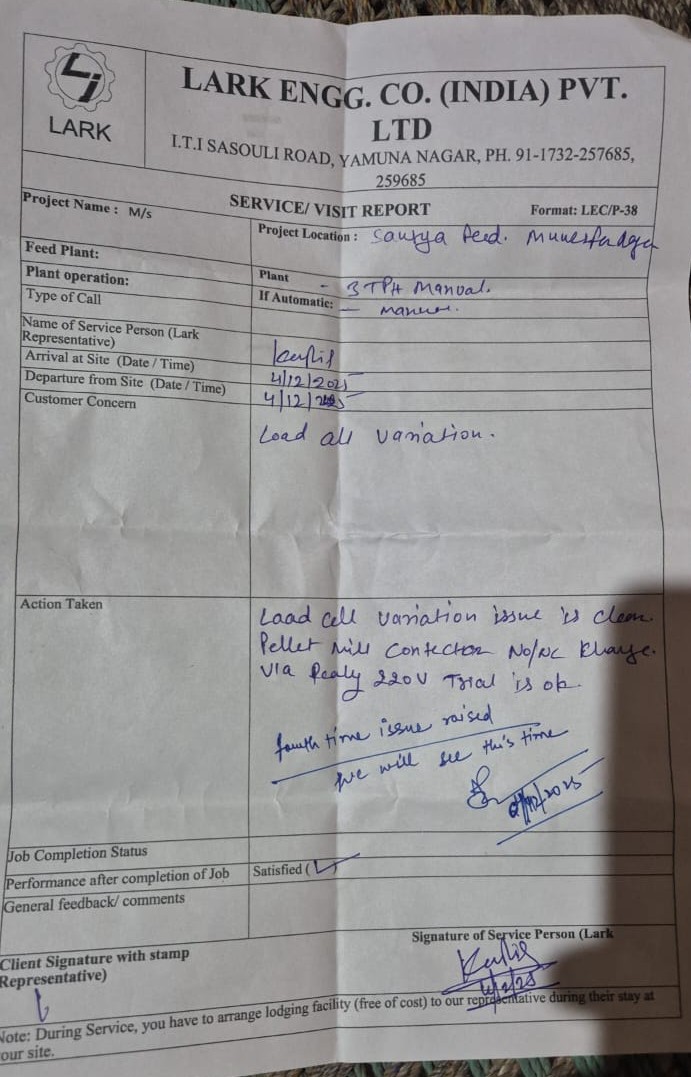 LARK
LARK ENGG. CO. (INDIA) PVT.
LTD
I.T.I SASOULI ROAD, YAMUNA NAGAR, PH. 91-1732-257685,
259685
Project Name : M/s
SERVICE/ VISIT REPORT
Format: LEC/P-38
Project Location : Saurya feed.
Feed Plant:
Plant operation:
Plant - 3 TPH Manual.
Type of Call
If Automatic: —
Name of Service Person (Lark
Representative)
Arrival at Site (Date / Time)
4/12/2025
Departure from Site (Date / Time)
4/12/2025
Customer Concern
Load all variation.
Action Taken
Load cell variation issue is clean.
Pellet Mill Contector No/NC Khange.
Via Realy 220V Trial is ok.
fourth time issue raised
we will see this time
Job Completion Status
Performance after completion of Job
Satisfied (
General feedback/ comments
Signature of Service Person (Lark
Client Signature with stamp
Representative)
Note: During Service, you have to arrange lodging facility (free of cost) to our representative during their stay at
our site.